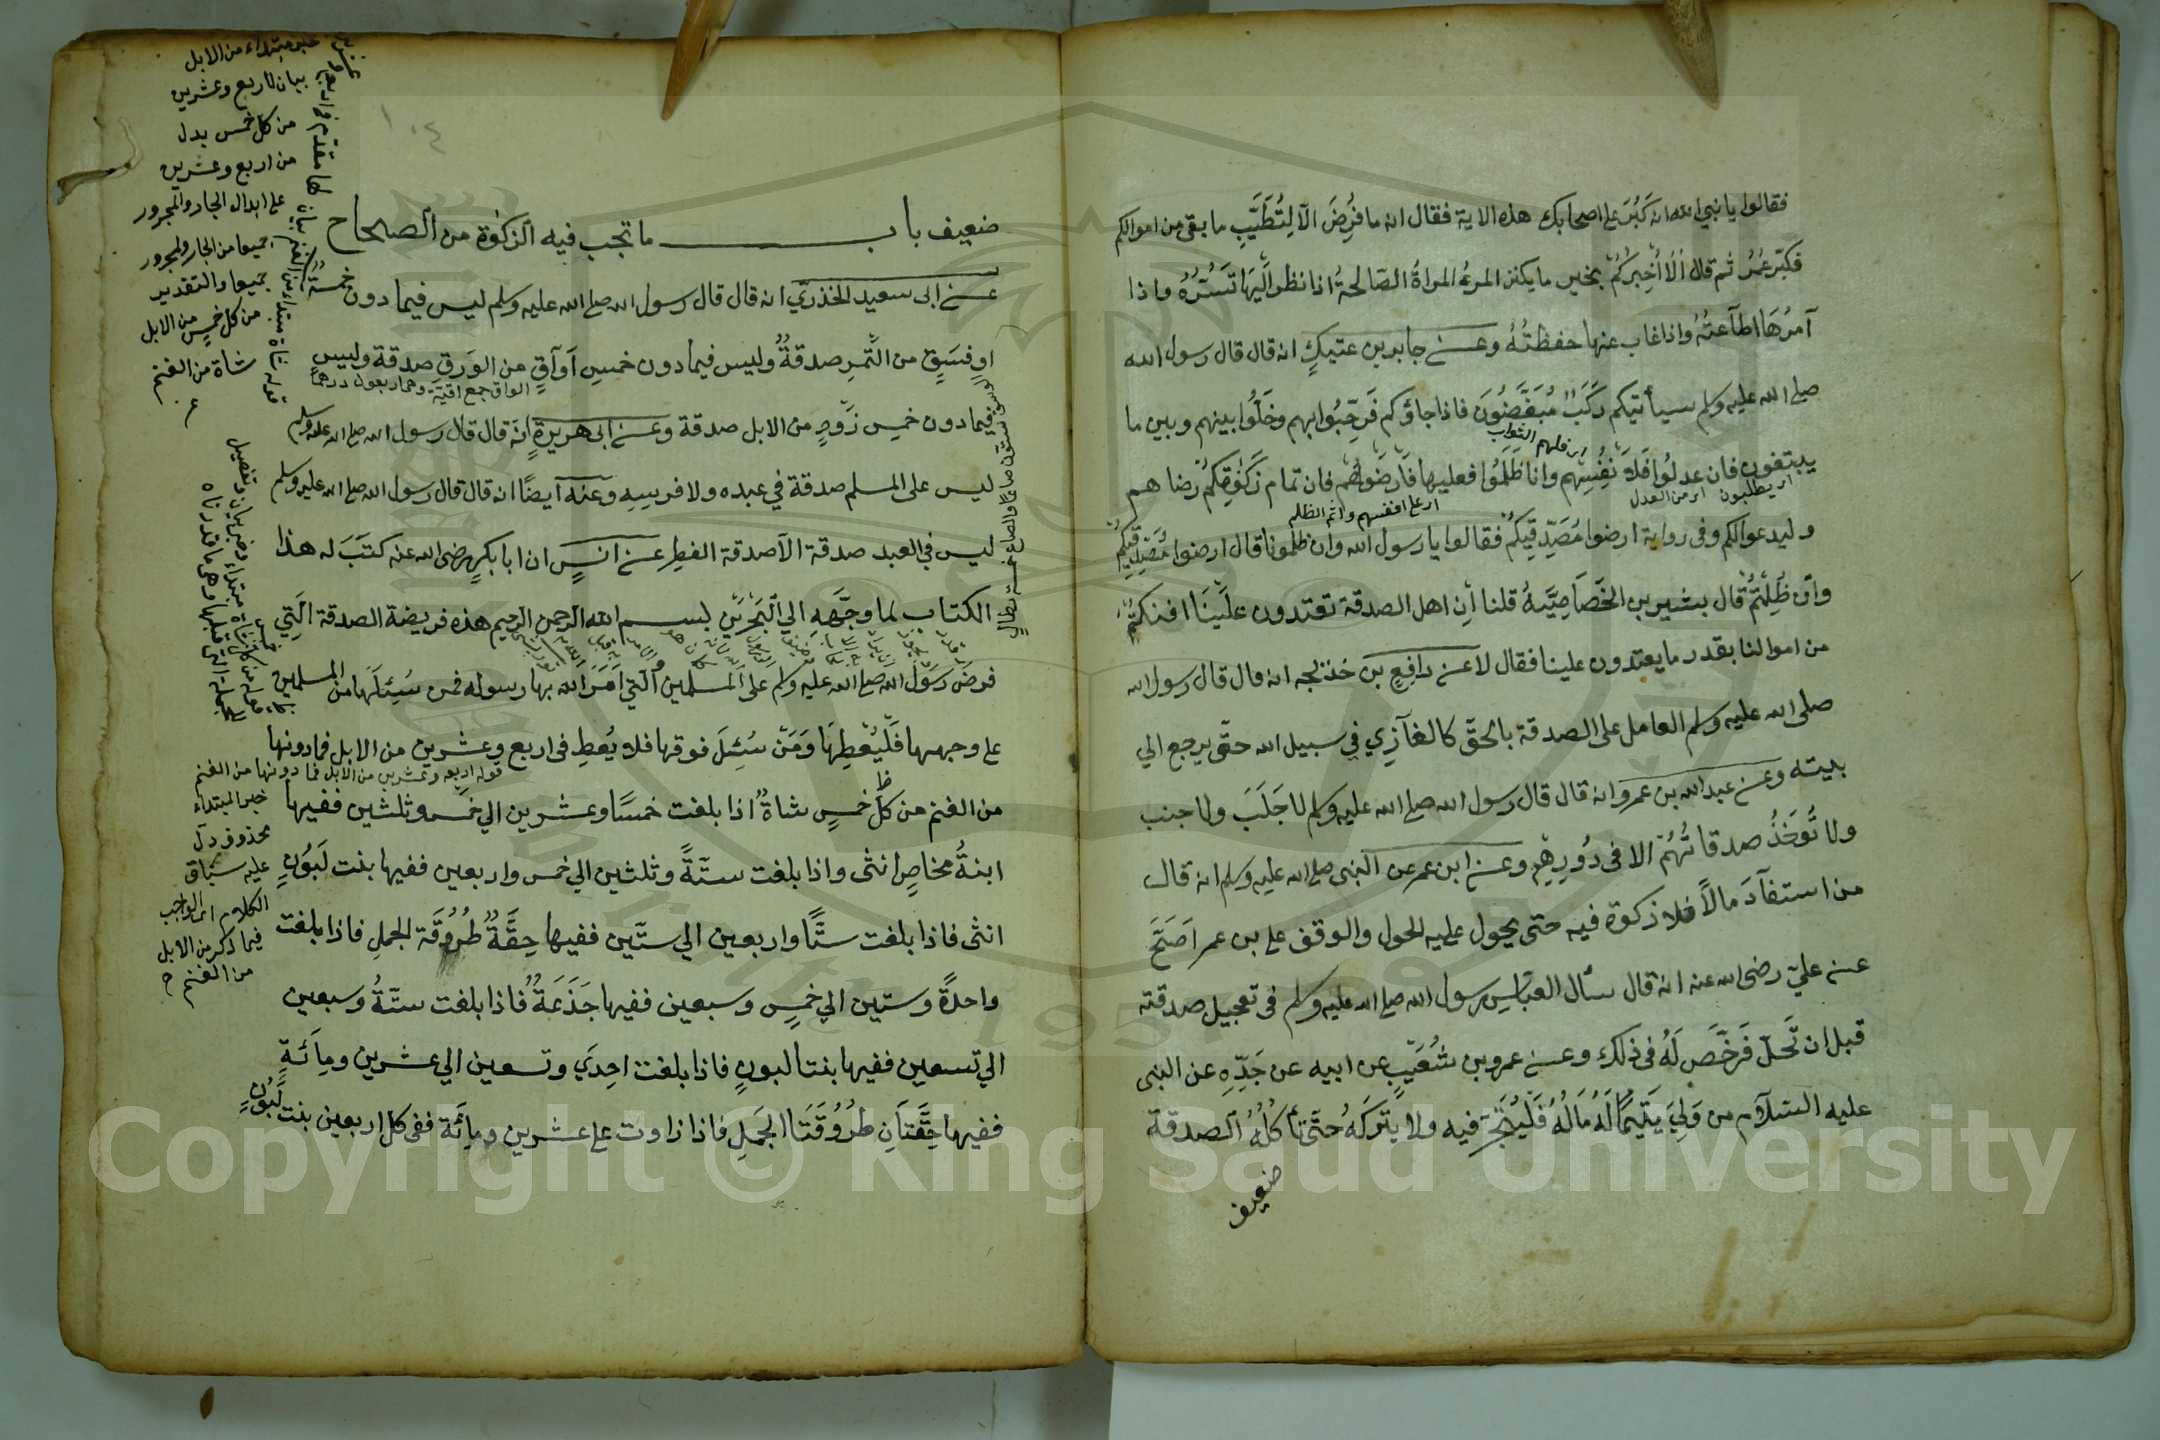 فقالوا يا نبي الله انه كَبُرَ على اصحابك هذه الاية فقال انه ما فُرِضَ الا لِتُطَيِّبِ ما بقى من اموالكم
فكبّر عُمَرُ ثم قال الا اُخْبِرُكُمْ بخير ما يكنز المرءُ المراةُ الصّالحةُ اذا نظر اليها تَسُرُّهُ واذا
آمرُهَا اطاعتهُ واذا غاب عنها حفظتهُ وعن جابر بن عتيكٍ انه قال قال رسول الله
صلى الله عليه وسلم سيأتيكم رَكَبٌ مُبَغَّضُونَ فاذا جاؤكم فَرَحِّبُوا بهم وخَلُّوا بينهم وبين ما
اى فلهم الثواب
يبتغون فان عدلُوا فَلِاَنفُسِهم وان ظَلَمُوا فعليها فَاَرضُوهُم فان تمام زَكوٰتِكُم رضاهم
اى يطلبون اى من العدل
اى على انفسهم واثم الظلم
وليدعوا لكم وفى رواية ارضوا مُصَدِّقِيكُم فقالوا يا رسول الله وان ظلمونا قال ارضوا مُصَدِّقِيكُم
وان ظُلِمْتُمْ قال بشير بن الخَصَاصِيَّةُ قلنا اِن اهل الصدقة تعتدون علَينَا افنكتُمُ
من اموالنا بقدر ما يعتدون علينا فقال لا عن رافِعِ بن خذيجه انه قال قال رسول الله
صلى الله عليه وسلم العامل على الصدقة بالحقّ كالغآزِي فِي سبيل الله حتّى يرجع الي
بيته وعن عبد الله بن عمرو انه قال قال رسول الله صلى الله عليه وسلم لا جَلَبَ ولا جنب
ولا تُؤخَذُ صدقاتُهُمْ الا فى دُورِهِم وعن ابن عمر عن النبى صلى الله عليه وسلم انه قال
من استفآدَ مالاً فلا زكوة فيه حتى يحول عليه الحول والوقف على بن عمر اَصَحّ
عن عليّ رضى الله عنه انه قال سأل العباس رسول الله صلى الله عليه وسلم فى تعجيل صدقته
قبل ان تَحِلّ فَرَخَّصَ لَهُ فى ذلك وعن عمرو بن شُعَيْبٍ عن ابيه عن جَدِّهِ عن النبى
عليه السّلام من وَلِيَ يَتِيمًا لَهُ مَالُهُ فَلْيَتَّجِرْ فيه ولا يَتْرَكَهُ حتى تأكُلُهُ الصدقة
ضعيف
١٠٤
ضعيف باب ما تجب فيه الزكوٰة من الصحاح
عن ابى سعيد الخذرىّ انه قال قال رسول الله صلى الله عليه وسلم ليس فيما دون خمسةُ
اوسَقٍ من التّمرِ صدقةٌ وليس فيما دون خمسِ آوَاقٍ من الوَرَقِ صدقة وليس
الواق جمع اقية وهما ربعون درهما
فيما دون خمسِ زَوْدٍ من الابل صدقة وعن ابى هريرةِ انه قال قال رسول الله صلى الله عليه وسلم
ليس على المسلم صدقة في عبده ولا فرسِهِ وعنه ايضًا انه قال قال رسول الله صلى الله عليه وسلم
ليس في العبد صدقة الا صدقة الفطر عن انسٍ ان ابا بكرٍ رضى الله عنه كتَبَ له هذا
الكتاب لما وجّهه الي البَحْرَيْن بسم الله الرحمن الرحيم هذه فريضة الصدقة الّتي
فرضَ رسول الله صلى الله عليه وسلم على المسلمين والتي اَمَرَ الله بها رسوله فمن سُئِلَهَا من المسلمين
على وجهها فَلْيُعْطِهَا وَمَنْ سُئِلَ فوقها فلا يُعطِ فى اربع وعشرين من الابل فما دونها
قوله اربعه وعشرين من الابل فما دونها من الغنم
من الغنم من كلّ خمسٍ شاةٌ اذا بلغت خمسًا وعشرين الي خمس وثلثين ففيها
ابنةُ مخاصٍ انثى واذا بلغت ستّةً وثلثين الي خمس واربعين ففيها بنت لَبُونٍ
انثى فاذا بلغت ستًّا واربعين الي ستّين ففيها حِقَّةٌ طُرُوقَة الجملِ فاذا بلغت
واحدةً وستين الي خمسٍ وسبعين ففيها جَذَعَةٌ فاذا بلغت ستّةُ وسبعين
الي تسعين ففيها بنتا لبونٍ فاذا بلغت احِدَي وتسعين الي عشرين ومِاَئَةٍ
ففيها حِقَّتاَنِ طَرُوُقَتَا الجَمَلِ فاذا زاوت على عشرين ومِائَة ففى كل اربعين بنت لَبُونٍ
خبر مبتداء من الابل
بيان لاربع وعشرين
من كل خمس بدل
من اربع وعشرين
على ابدال الجار والمجرور
جميعا من الجار والمجرور
جميعا والتقدير
من كل خمسٍ من الابل
شاة من الغنم
خبر المبتداء
محذوف دلّ
عليه سياق
الكلام اى الواجب
فيما ذكر من الابل
من الغنم
Copyright © King Saud University
1957